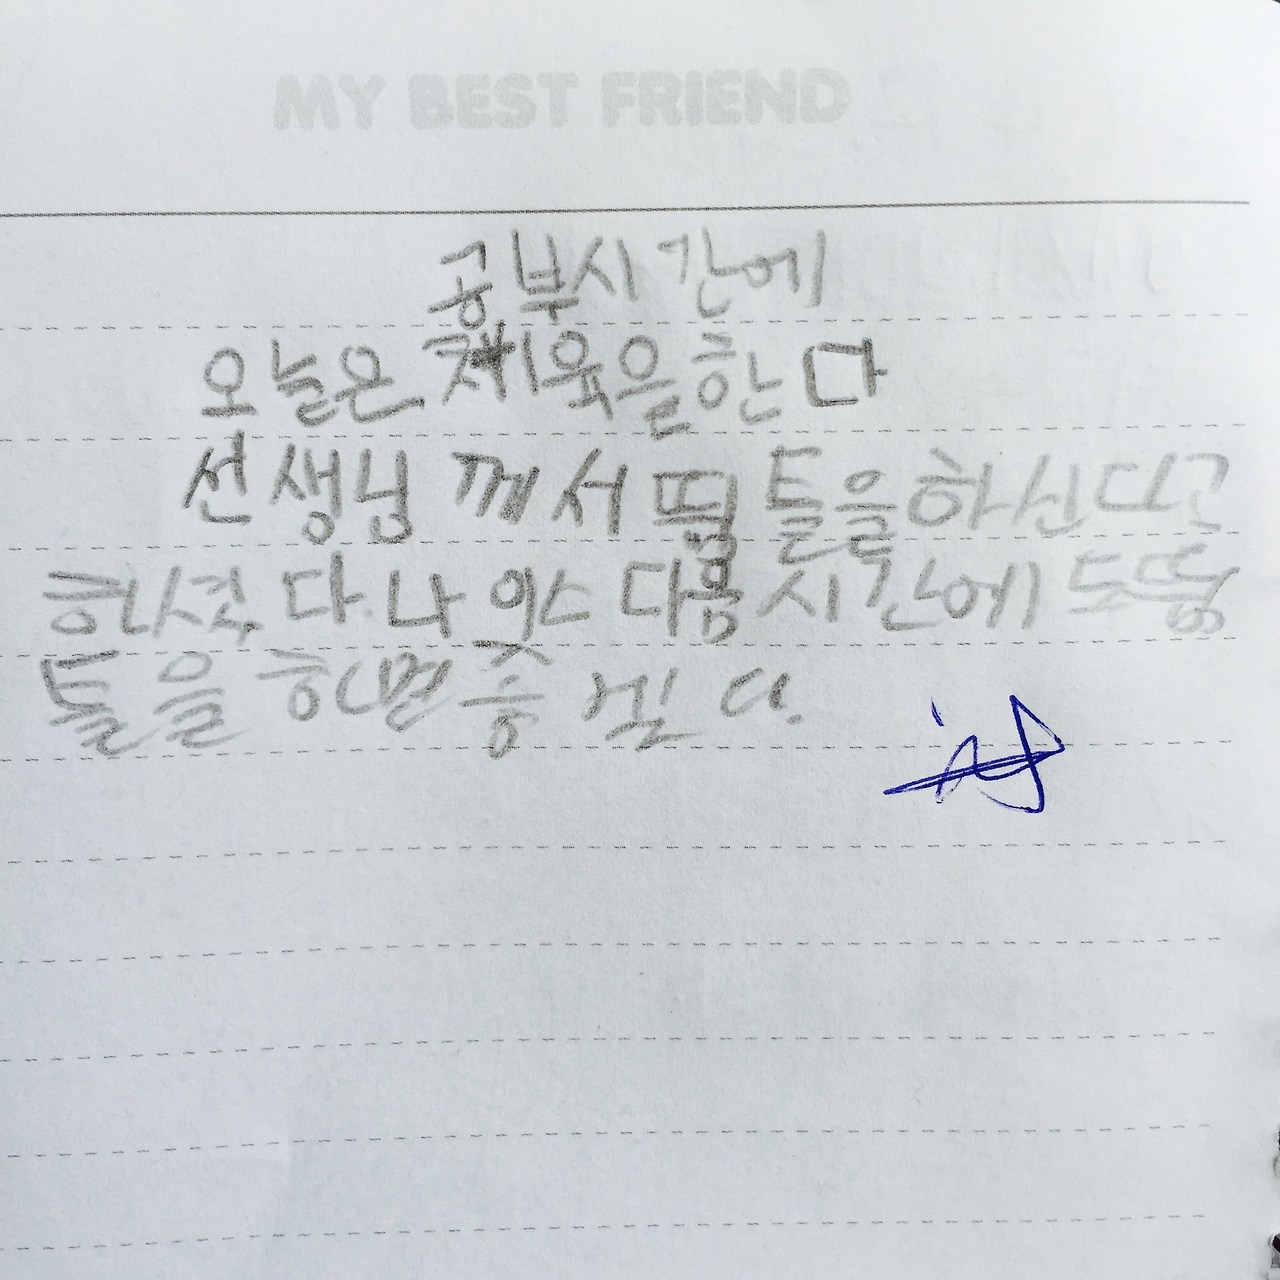 MY BEST FRIEND
공부시간에
오늘은 체육을한다
선생님께서 띔틀을하신다고
하셨다. 나 이스 다음시간에 도 띔
틀을 하면 좋겠다.